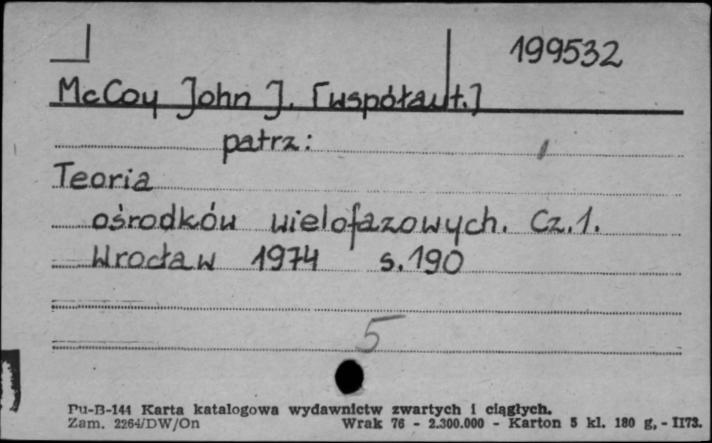 199532
McCoy John J. [współaut.]
patrz:
Teoria
ośrodków wielofazowych. Cz.1.
Wrocław 1974 s.190
5
Pu-B-144 Karta katalogowa wydawnictw zwartych i ciągłych.
Zam. 2264/DW/On Wrak 76 - 2.300.000 - Karton 5 kl. 180 g, - II73.